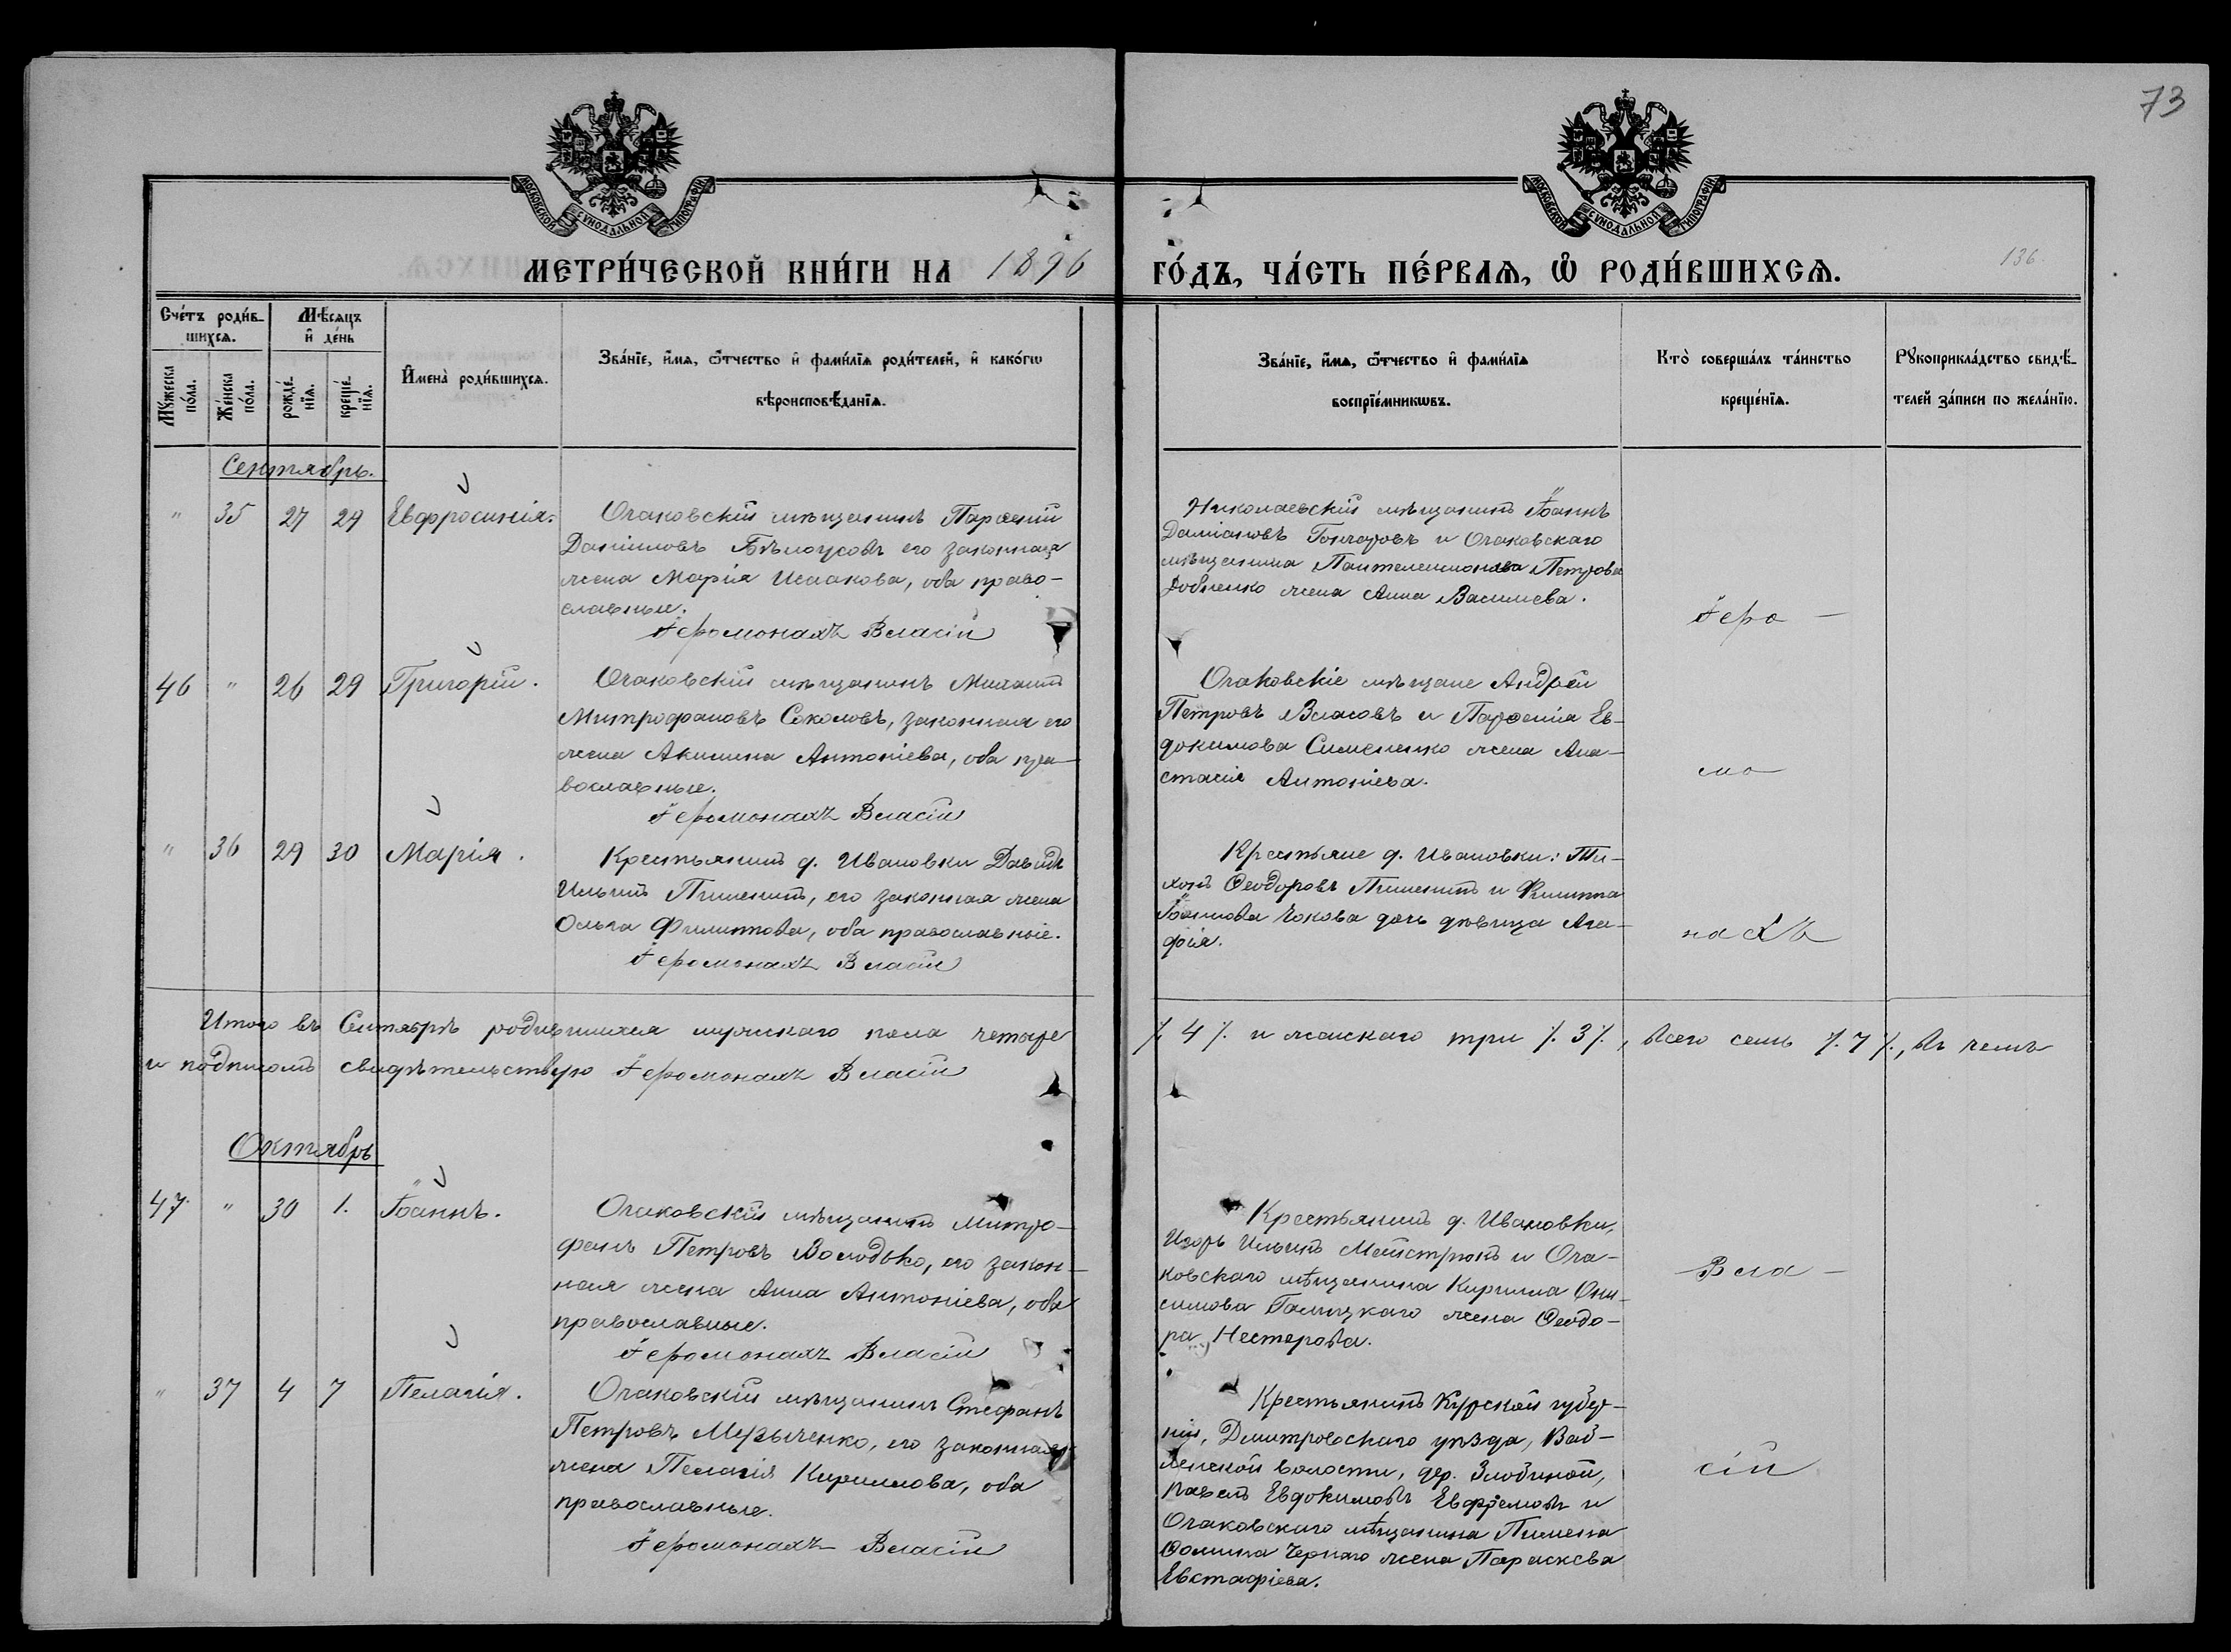 73
МОСКОВСКОЙ СѴНОДАЛЬНОЙ ТИПОГРАФІИ
МОСКОВСКОЙ СѴНОДАЛЬНОЙ ТИПОГРАФІИ
МЕТРИ́ЧЕСКОЙ КНИ́ГИ НА 1896 ГО́ДЪ, ЧА́СТЬ ПЕ́РВАѦ, Ѽ РОДИ́ВШИХСѦ.
136
Сче́тъ роди́в-
шихсѧ.
Мꙋ́жеска по́ла.
Же́нска по́ла.
Мѣ́сѧцъ
и҆ де́нь
рожде́-нїѧ.
креще́-нїѧ.
И҆мена̀ роди́вшихсѧ.
Зва́нїе, и҆́мѧ, ѻ҆́тчество и҆ фами́лїѧ роди́телей, и҆ како́гѡ
вѣроисповѣ́данїѧ.
Зва́нїе, и҆́мѧ, ѻ҆́тчество и҆ фами́лїѧ
воспрїе́мникѡвъ.
Кто̀ соверша́лъ та́инство
креще́нїѧ.
Рꙋкоприкла́дство свидѣ́-
телей за́писи по жела́нїю.
Сентябрь.
" 35 27 29 Евфросинія.
Очаковскій мѣщанинъ Парѳеній
Даніиловъ Бѣлоусовъ его законная
жена Марія Исаакова, оба право-
славные.
Іеромонахъ Власій
Николаевскій мѣщанинъ Іоаннъ
Даміановъ Гончаровъ и Очаковскаго
мѣщанина Пантелеимонава Петрова
жена Анна Васильева.
Іеро-
46 " 26 29 Григорій.
Очаковскій мѣщанинъ Михаилъ
Митрофановъ Соколовъ, законная его
жена Акилина Антоніева, оба пра-
вославные.
Іеромонахъ Власій
Очаковскіе мѣщане Андрей
Петровъ Власовъ и Парѳенія Ев-
докимова Симененко жена Ана-
стасія Антоніева.
мо
" 36 29 30 Марія.
Крестьянинъ д. Ивановки Давидъ
Ильинъ Пименитъ, его законная жена
Ольга Филиппова, оба православные.
Іеромонахъ Власій
Крестьяне д. Ивановки: Ти-
хонъ Ѳеодоровъ Пименитъ и Филиппа
Іоаннова Чокова дочь дѣвица Ага-
фія.
нахъ
Итого въ Сентябрѣ родившихся мужскаго пола четыре ٪ 4 ٪ и женскаго три ٪ 3 ٪, всего семь ٪ 7 ٪, въ чемъ
и подписомъ свидѣтельствую Іеромонахъ Власій
Октябрь
47. " 30 1. Іоаннъ.
Очаковскій мѣщанинъ Митро-
фанъ Петровъ Володько, его закон-
ная жена Анна Антоніева, оба
православные.
Іеромонахъ Власій
Крестьянинъ д. Ивановки,
Игорь Ильинъ Мейстрюкъ и Оча-
ковскаго мѣщанина Кирилла Они-
симова Галицкаго жена Ѳеодо-
ра Нестерова.
Вла-
" 37 4 7 Пелагія.
Очаковскій мѣщанинъ Стефанъ
Петровъ Музыченко, его законная
жена Пелагія Кириллова, оба
православные.
Іеромонахъ Власій
Крестьянинъ Курской губер-
ніи, Дмитровскаго уѣзда,
волости, дер. Злобиной,
Павелъ Евдокимовъ Евфремовъ и
Очаковскаго мѣщанина Пимена
Ѳомина Чернаго жена Параскева
Евстафіева.
сій